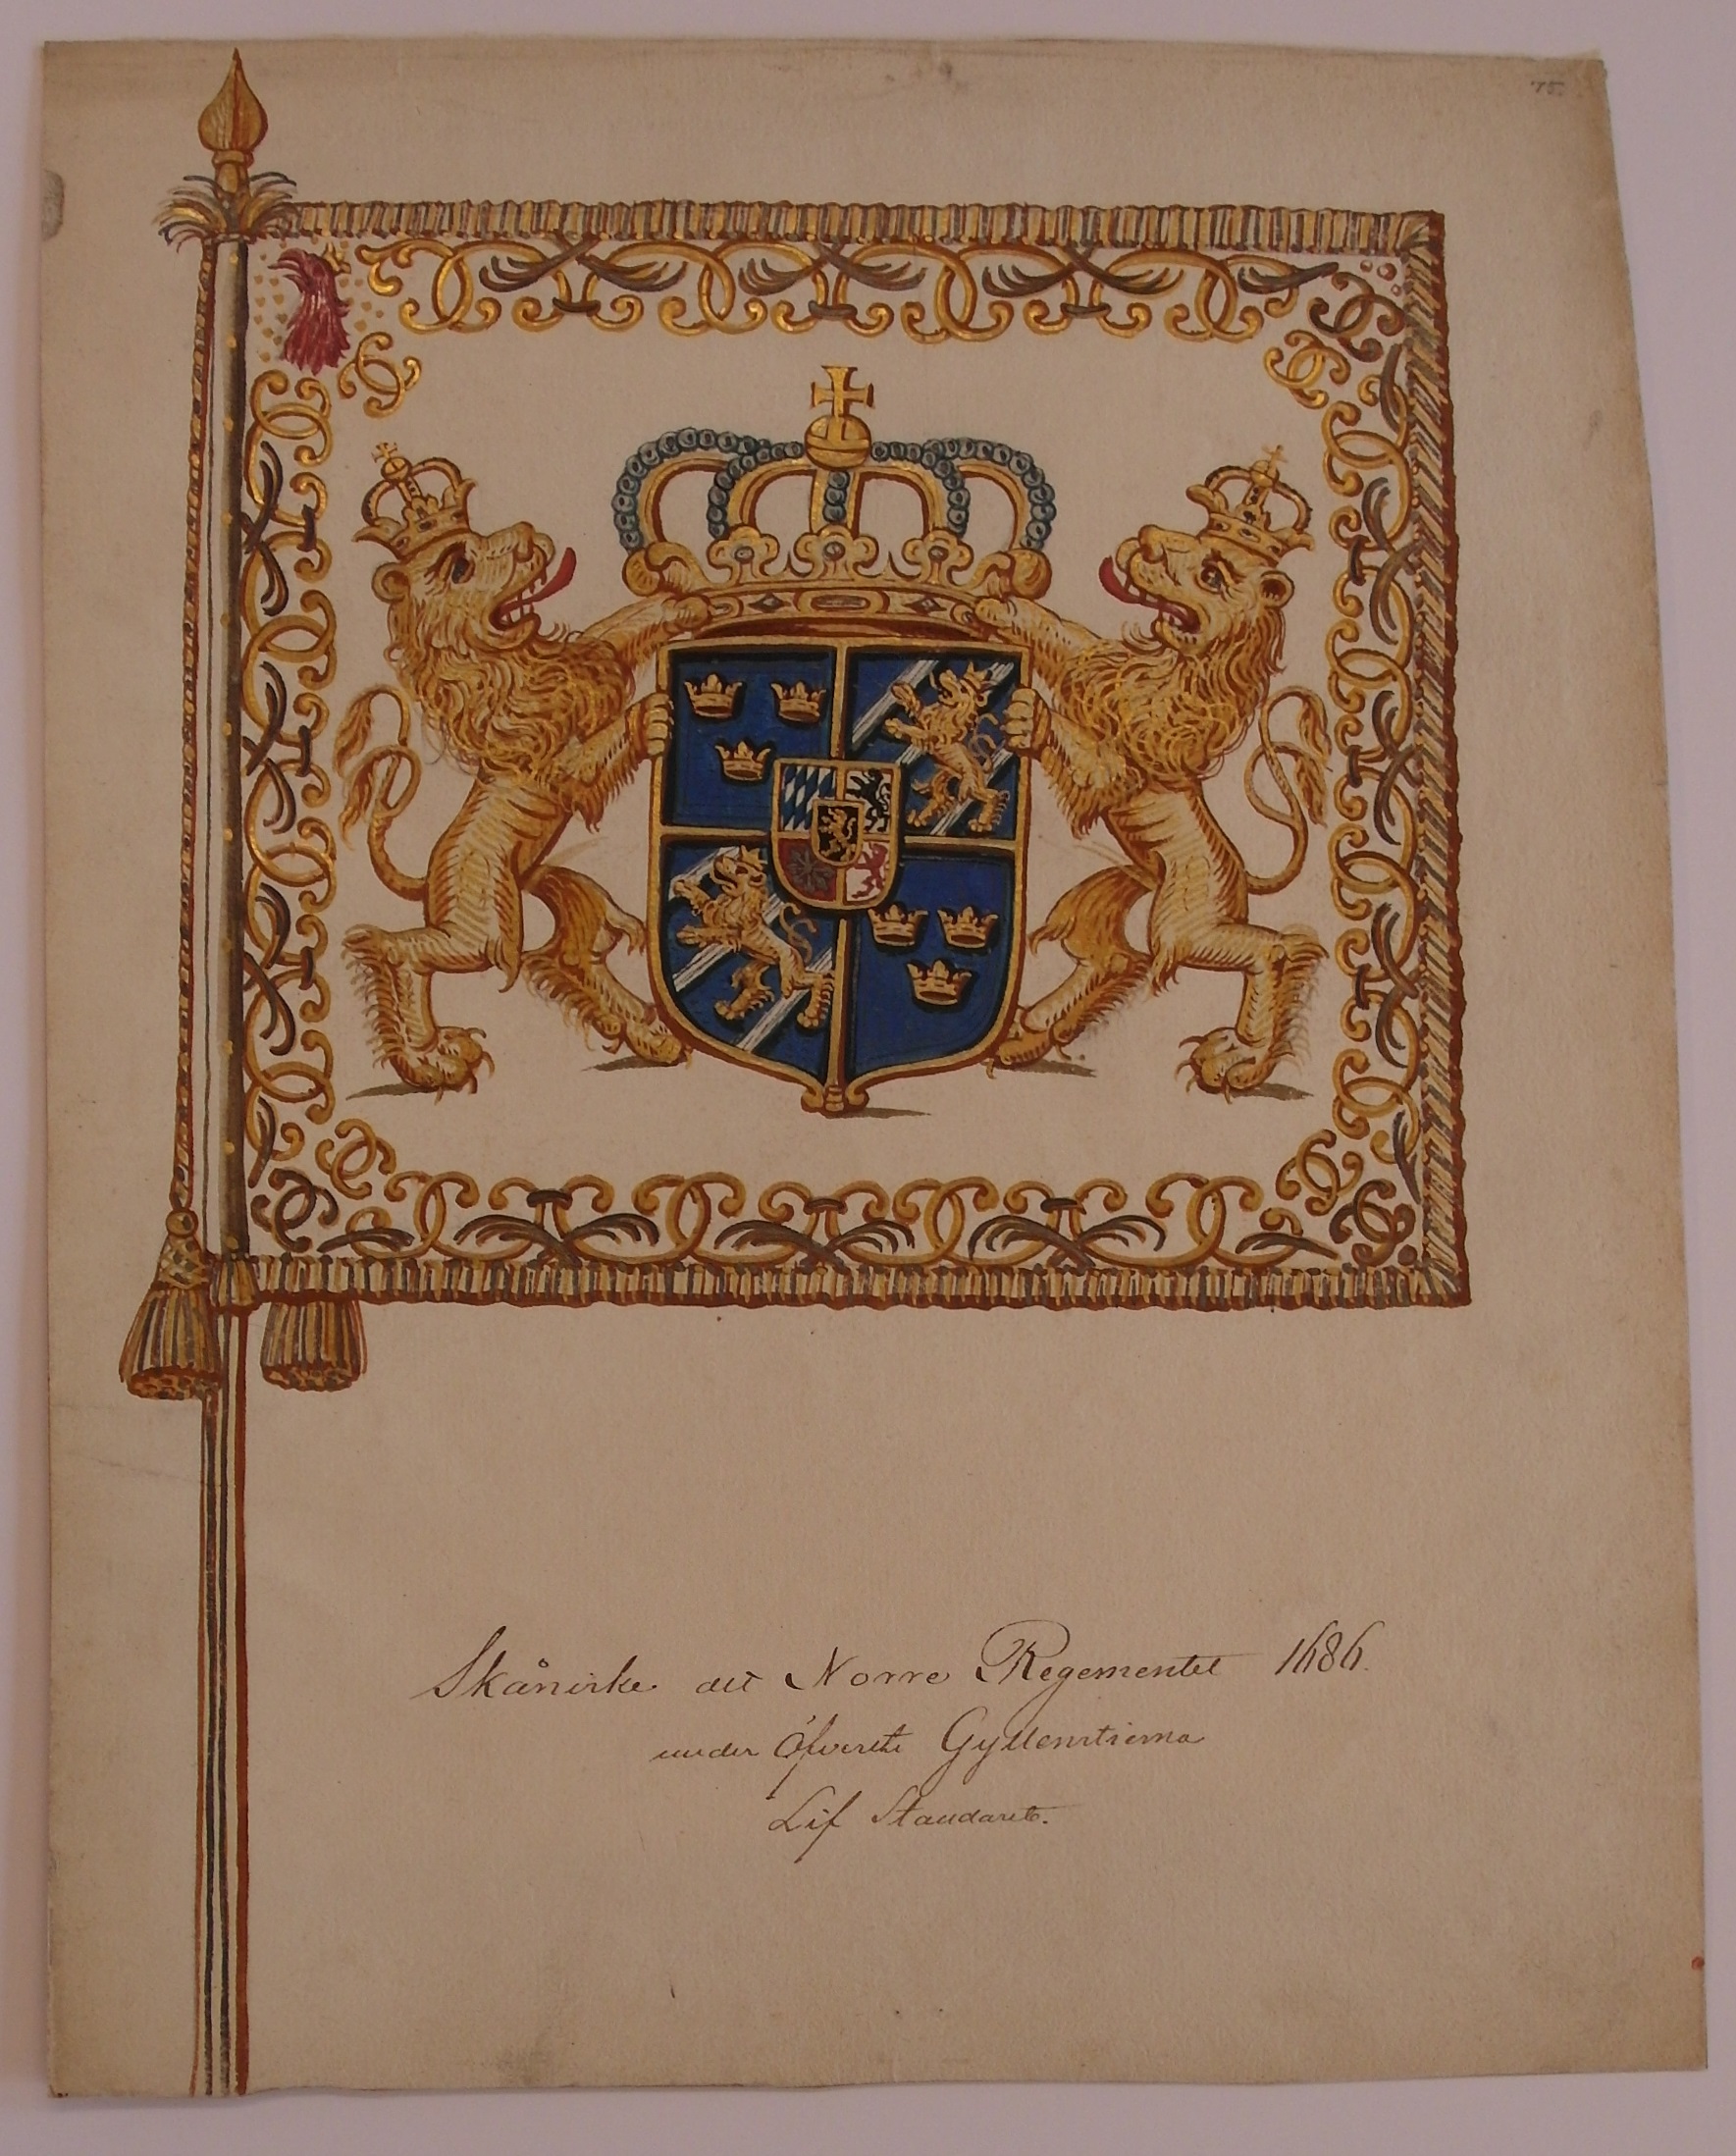 75.
Skånske det Norre Regementet 1686.
under Öfverste Gyllenstierna
Lif Standaret.